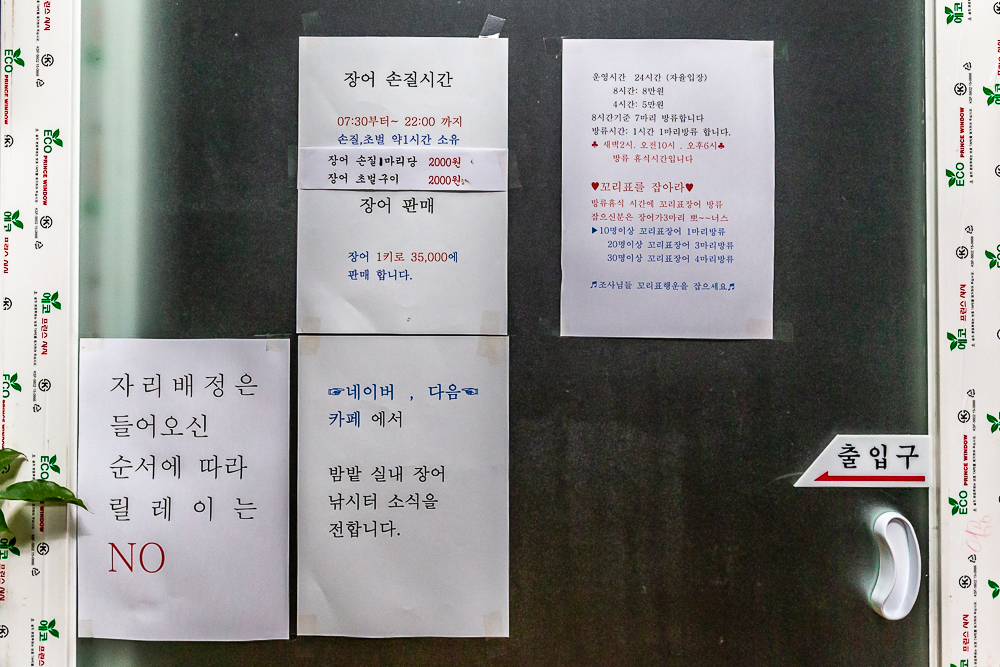 장어 손질시간
07:30부터~ 22:00 까지
손질,초벌 약1시간 소유
장어 손질1마리당 2000원
장어 초벌구이 2000원
장어 판매
장어 1키로 35,000에
판매 합니다.
운영시간 24시간 (자율입장)
8시간: 8만원
4시간: 5만원
8시간기준 7마리 방류합니다
방류시간: 1시간 1마리방류 합니다.
♣ 새벽2시. 오전10시 . 오후6시♣
방류 휴식시간입니다
♥꼬리표를 잡아라♥
방류휴식 시간에 꼬리표장어 방류
잡으신분은 장어가3마리 뽀~~너스
▶10명이상 꼬리표장어 1마리방류
20명이상 꼬리표장어 3마리방류
30명이상 꼬리표장어 4마리방류
♬조사님들 꼬리표행운을 잡으세요♬
자리배정은
들어오신
순서에 따라
릴 레 이 는
NO
☞네이버 , 다음☜
카페 에서
밤밭 실내 장어
낚시터 소식을
전합니다.
출입구
ECO PRINCE WINDOW
에코 프린스 샤시